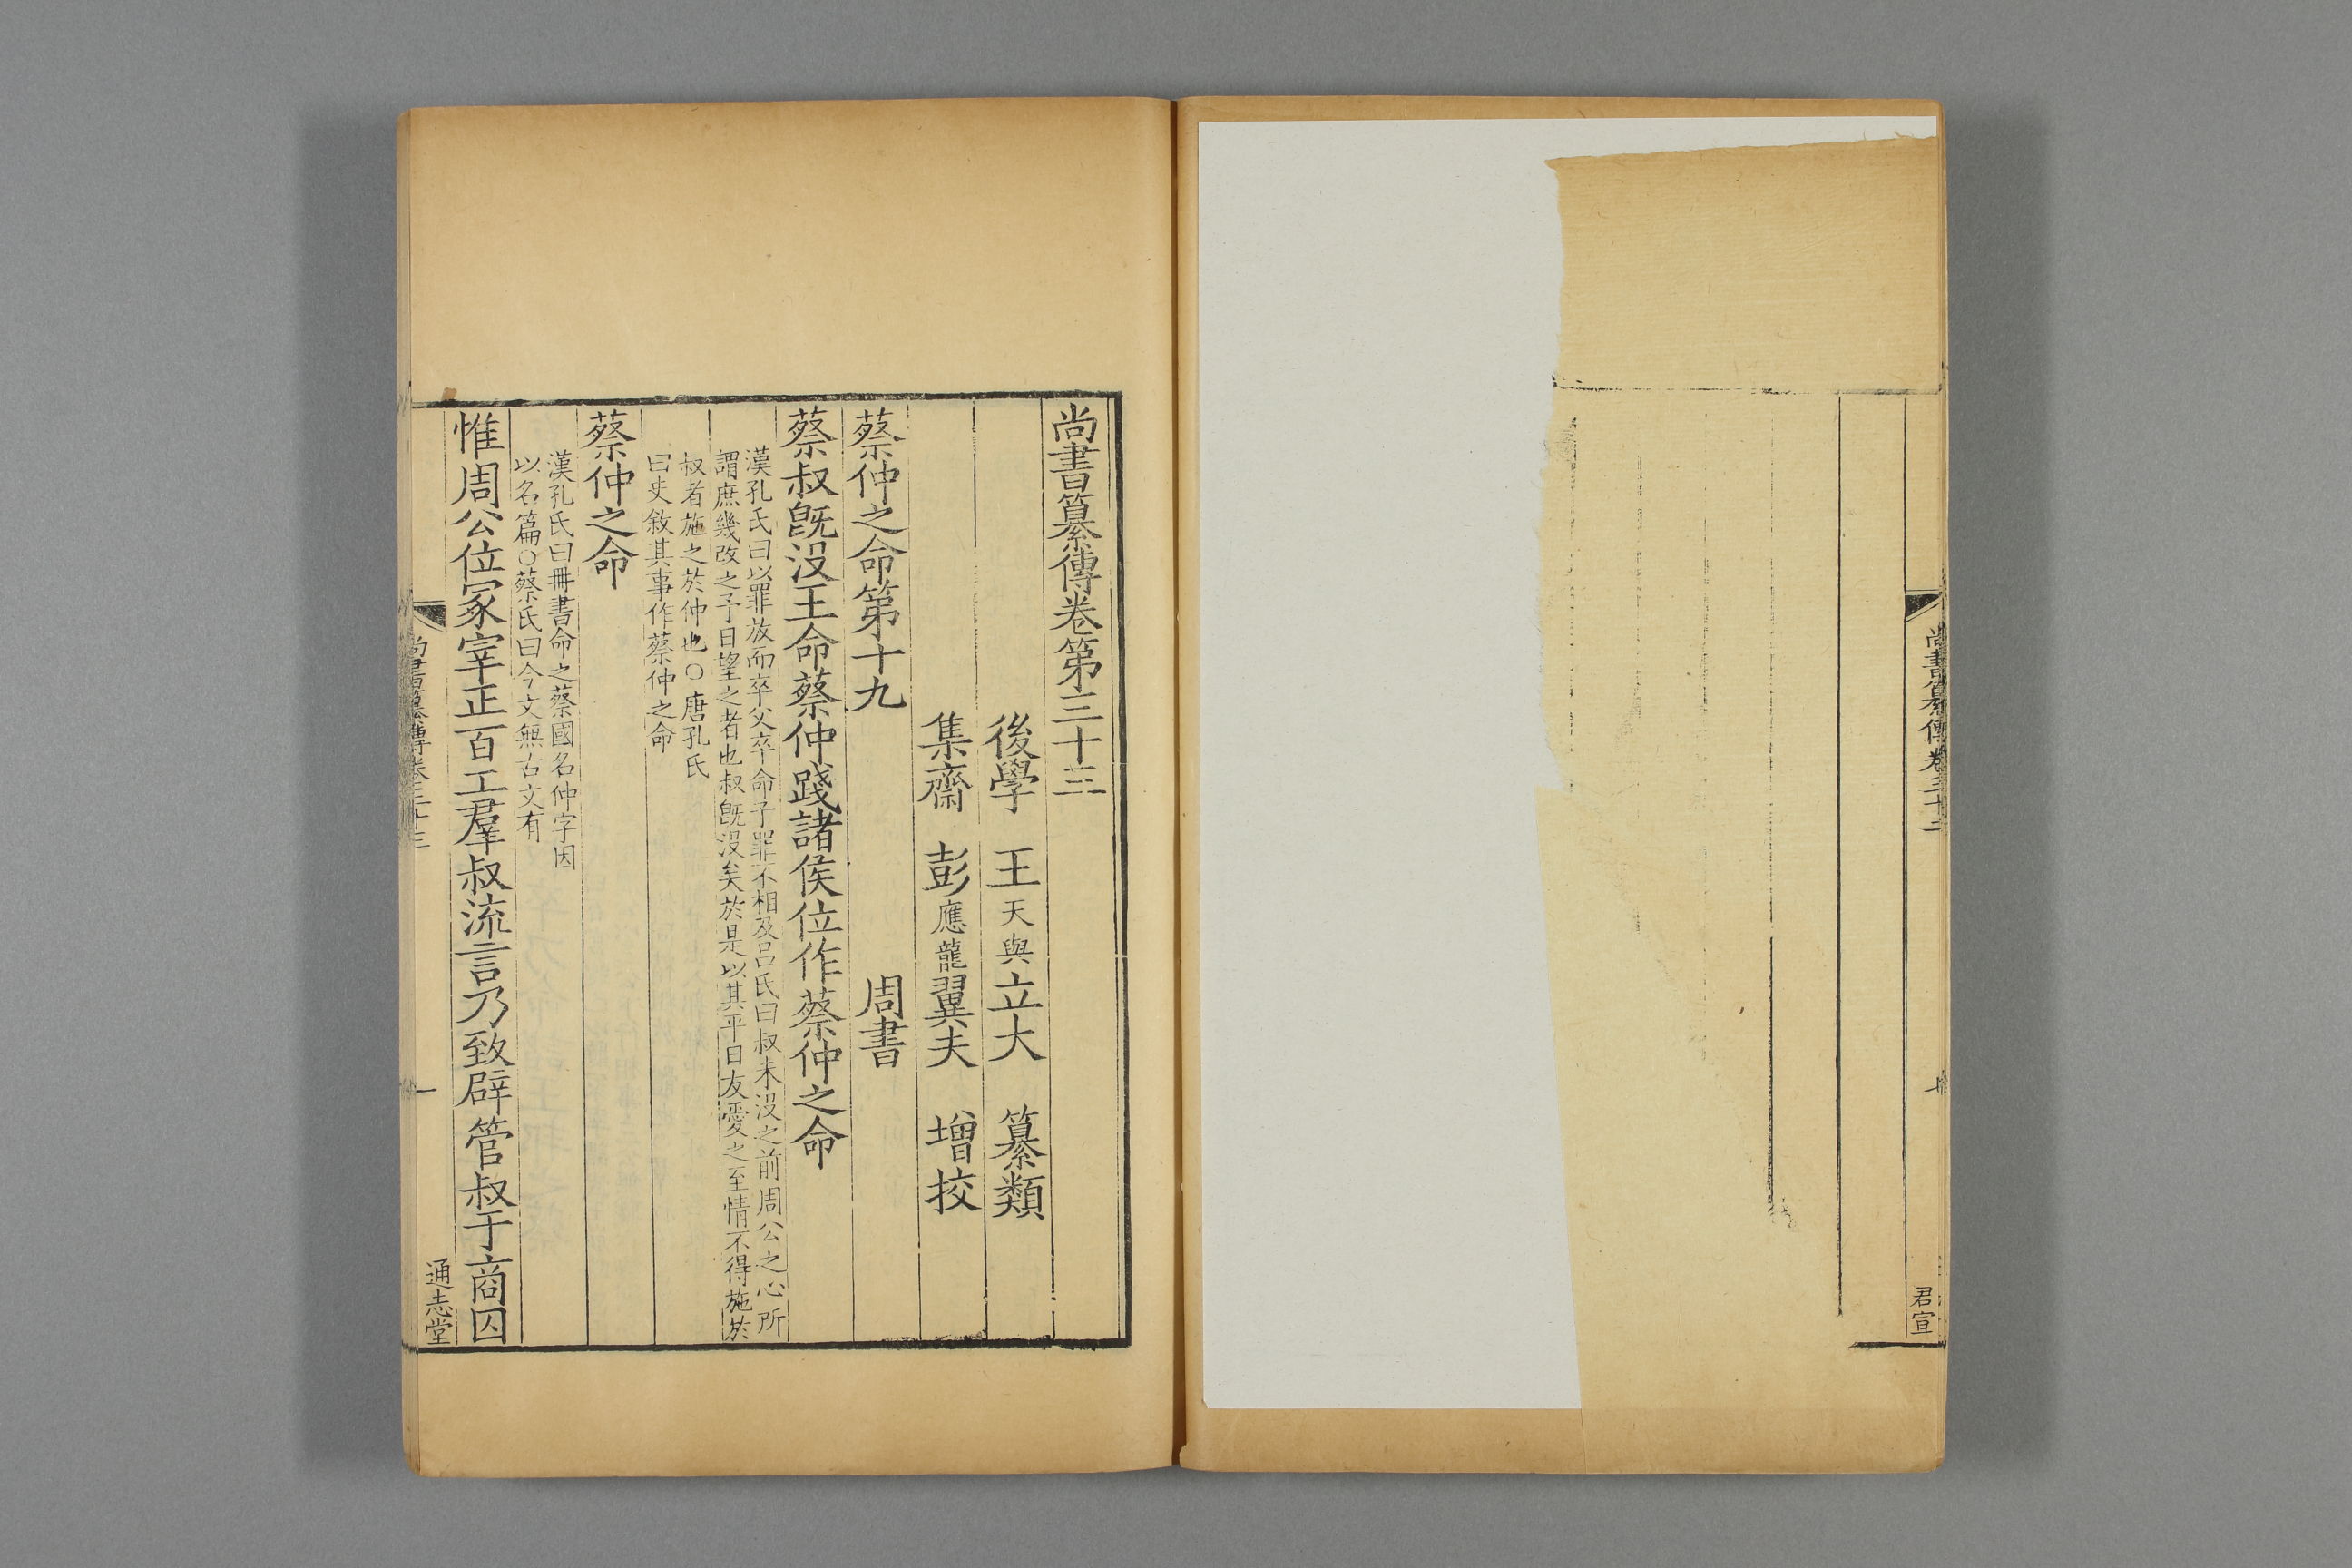 尚書纂傳卷三十二
君宣
尚書纂傳卷第三十三
後學　王天與立大　纂類
集齋　彭應龍翼夫　增挍
蔡仲之命第十九　周書
蔡叔旣没王命蔡仲踐諸侯位作蔡仲之命
漢孔氏曰以罪放而卒父卒命子罪不相及吕氏曰叔未没之前周公之心所
謂庶幾改之予日望之者也叔旣没矣於是以其平日友愛之至情不得施於
叔者施之於仲也○唐孔氏
曰史敘其事作蔡仲之命
蔡仲之命
漢孔氏曰冊書命之蔡國名仲字因
以名篇○蔡氏曰今文無古文有
惟周公位冢宰正百工羣叔流言乃致辟管叔于商囚
尚書纂傳卷三十三
一
通志堂